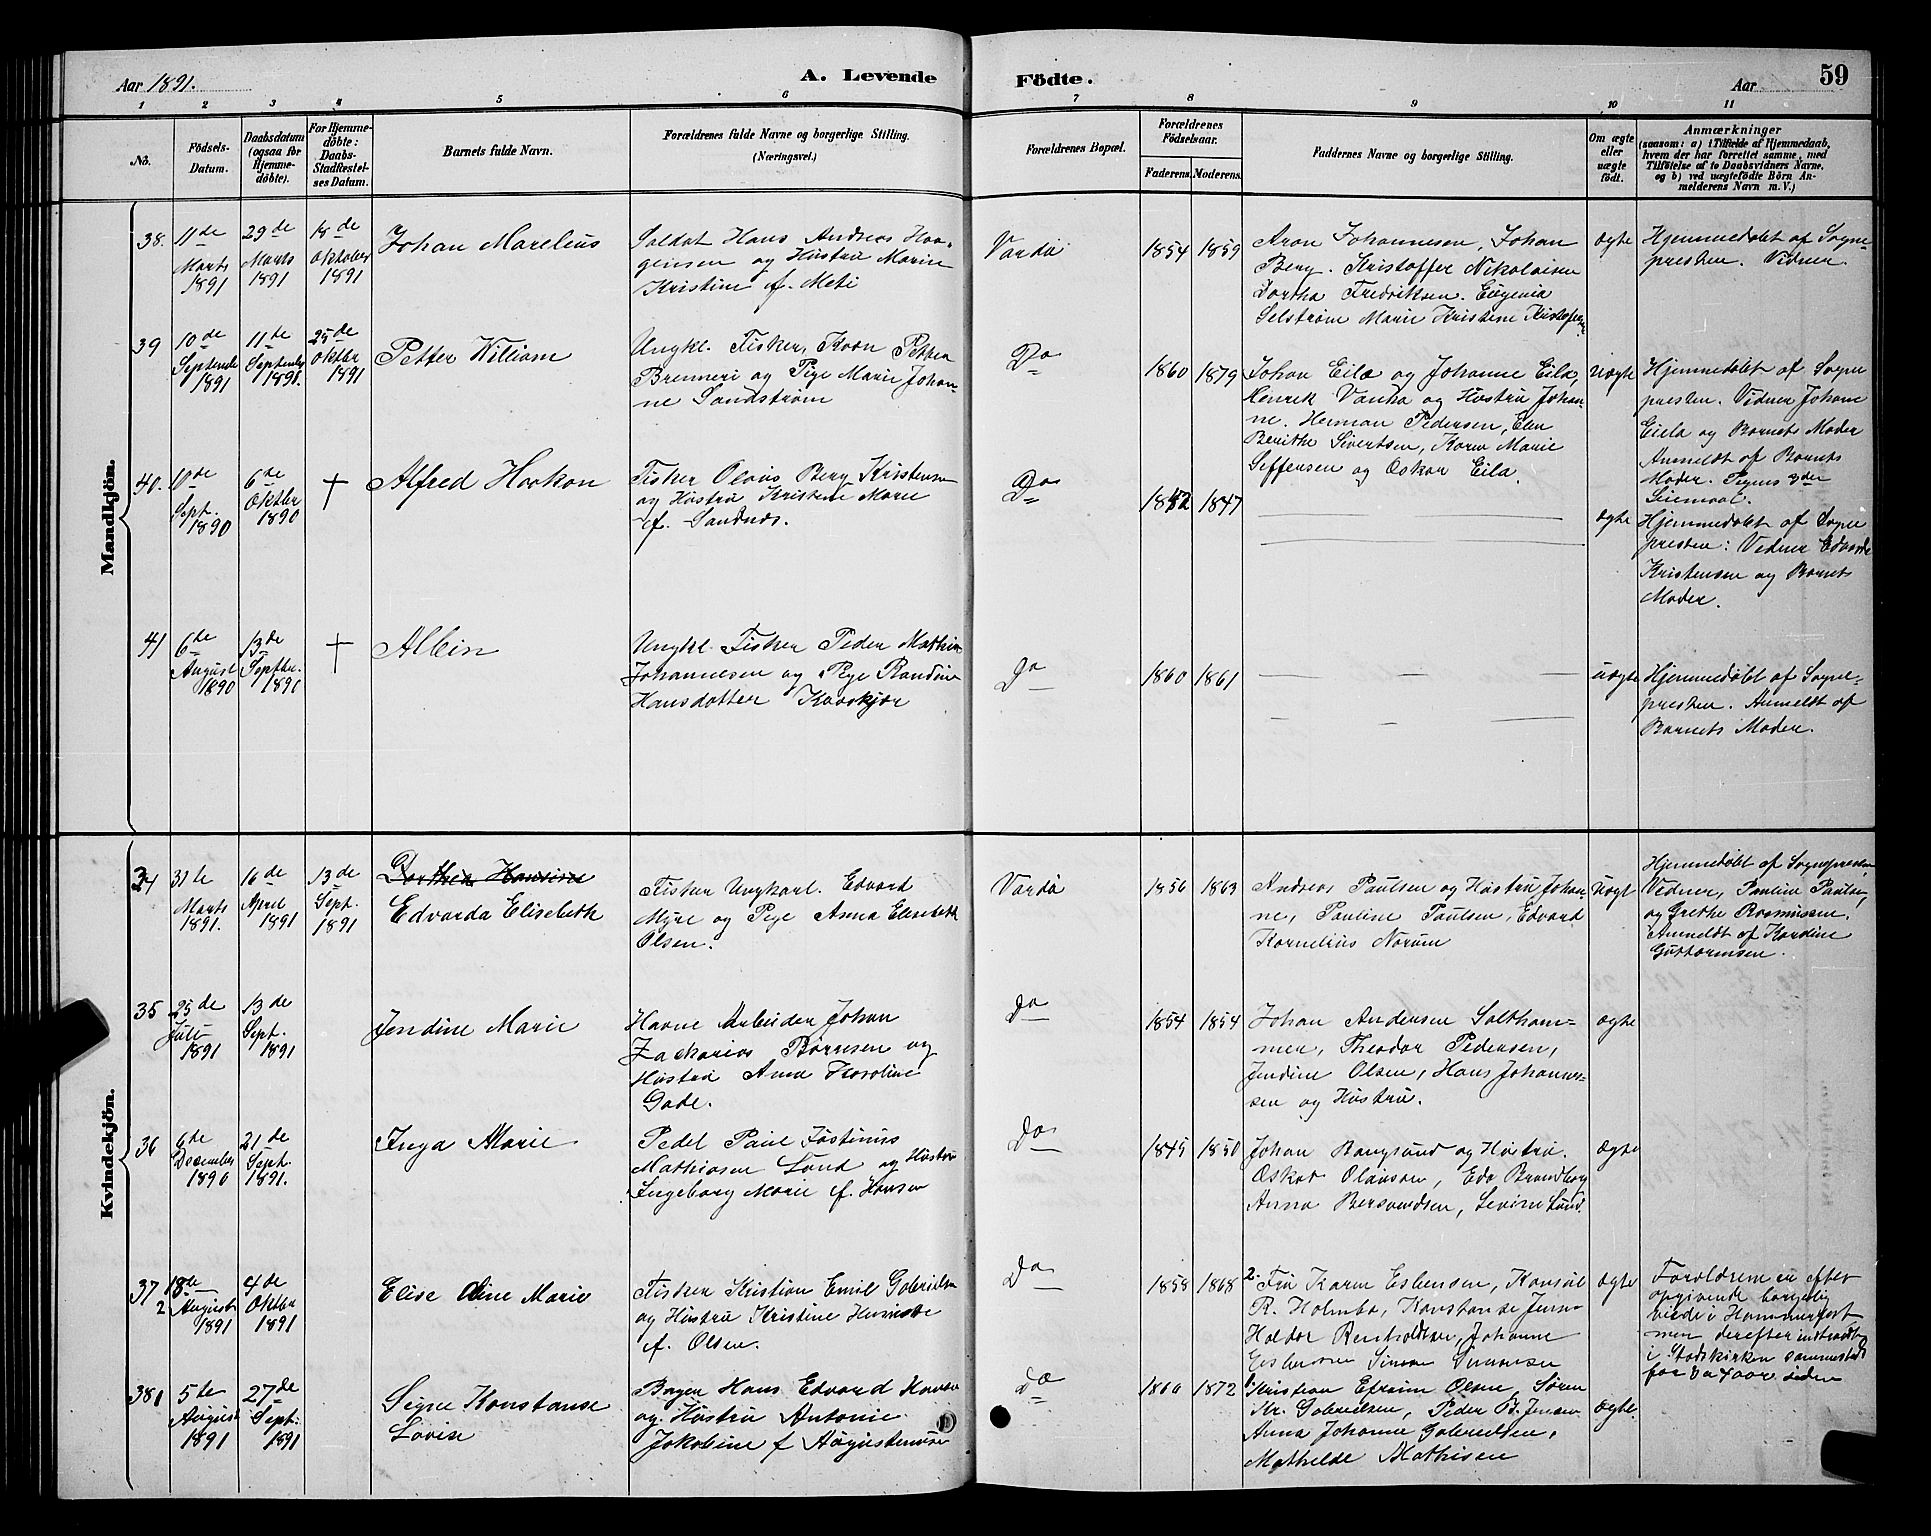 Aar 1891.
A. Levende
Födte.
Aar
59
1 2 3 4 5 6 7 8 9 10 11
No.
Födsels-
Datum.
Daabsdatum
(ogsaa for
Hjemme-
döbte).
For Hjemme-
döbte:
Daabs-
Stadfæstel-
ses Datum.
Barnets fulde Navn.
Forældrenes fulde Navne og borgerlige Stilling.
(Næringsvei.)
Forældrenes Bopæl.
Forældrenes
Födselsaar.
Faderens. Moderens.
Faddernes Navne og borgerlige Stilling.
Om ægte
eller
uægte
födt.
Anmærkninger
(saasom: a) i Tilfælde af Hjemmedaab,
hvem der har forrettet samme, med
Tilföielse af to Daabsvidners Navne,
og b) ved uægtefödte Börn An-
melderens Navn m. V.)
Mandkjön.
38.
11de
Marts
1891
29de
Marts
1891
18de
Oktober
1891
Johan Marelius
Soldat Hans Andreas Haa-
gensen og Hustru Marie
Kristine f. Meti
Vardö
1854 1859
Aron Johannesen, Johan
Berg. Kristoffer Nikolaisen
Dortha Fredriksen. Eugenia
Selström Marie Kristine
ægte
Hjemmedöbt af Sogne-
presten. Vidner.
39
10de
September
1891
11de
September
1891.
25de
Oktbr
1891
Petter William
Ungkl. Fisker, Petter
Brenneri og Pige Marie Johan-
ne Sandström
Do
1860 1879
Johan Eila og Johanne Eila,
Henrik Vanha og Hustru Johan-
ne. Herman Pedersen, Elen
Berithe Sivertsen, Karen Marie
Seffensen og Oskar Eila.
Uægte
Hjemmedöbt af Sogne
presten. Vidner Johanne
Eiela og Barnets Moder
Anmeldt af Barnets
Moder. Pigens 3die
Leiermaal.
40.
10de
Sept.
1890
6de
Oktbr
1890
†
Alfred Haakon
Fisker Olaus Berg Kristensen
og Hustru Kristine Marie
f. Sandnes.
Do
1852 1847
ægte
Hjemmedöbt af Sogne
presten: Vidner Edvard
Kristensen og Barnets
Moder.
41
6de
August
1890
13de
Septbr.
1890
†
Albin
Ungkl. Fisker Peder Mathias
Johannesen og Pige Randine
Hansdatter Kvaskjær
Do
1860 1861
uægte
Hjemmedöbt af Sogne-
presten. Anmeldt af
Barnets Moder.
Kvindekjön.
34
31te
Marts
1891.
16de
April
1891
13de
Sept.
1891
Dorthea Hansine
Edvarda Elisebeth
Fisker Ungkarl. Edvard
Myre og Pige Anna Elisebeth
Olsen.
Vardö
1856 1863
Andreas Paulsen og Hustru Johan-
ne, Pauline Paulsen, Edvard
Kornelius Norum
Uægt
Hjemmedöbt af Sognepresten,
Vidner, Pauline Paulsen,
og Grethe Rasmussen.
Anmeldt af Kardine
Guttormsen.
35
25de
Juli
1891
13de
Sept.
1891
Jendine Marie
Havne Arbeider Johan
Zackarias Börnsen og
Hustru Anna Karoline
Gade.
Do
1854 1854
Johan Andersen Saltham-
mer, Theodor Pedersen,
Jendine Olsen, Hans Johannes-
sen og Hustru.
ægte
36
6de
December
1890
21de
Sept.
1891.
Inga Marie
Pedel Paul Justinus
Mathiasen Lund og Hustru
Ingeborg Marie f. Hansen
Do
1845 1850
Johan Bangsund og Hustru.
Oskar Olausen, Eda Brandberg
Anna Bersvendsen, Sevrin Lund.
Ægte
37
2
18de
August
1891
4de
Oktbr
1891
Elise Oline Marie
Fisker Kristian Emil Gabrielsen
og Hustru Kristine
f. Olsen.
Do
1858 1868
2. Fru Karen Esbensen, Konsul
R. Holmbo, Konstanse Jensen
Haldor Renholdsen, Johanne
Esbensen Simon Simonsen
ægte
Foreldrene er efter
opgivende borgerlig
viede i Hammerfest
men derefter indtraadte
i Stadskirken sammesteds
for 3 a 4 aar siden
38
1
5te
August
1891
27de
Sept.
1891
Signe Konstanse
Lovise
Bager Hans Edvard Hansen
og Hustru Antonie
Jakobine f Augustinusen
Do
1866 1872
1. Kristian Efraim Olsen, Sören
Kr. Gabrielsen, Peder B. Jensen
Anna Johanne Gabrielsen,
Mathilde Mathisen
Ægte.